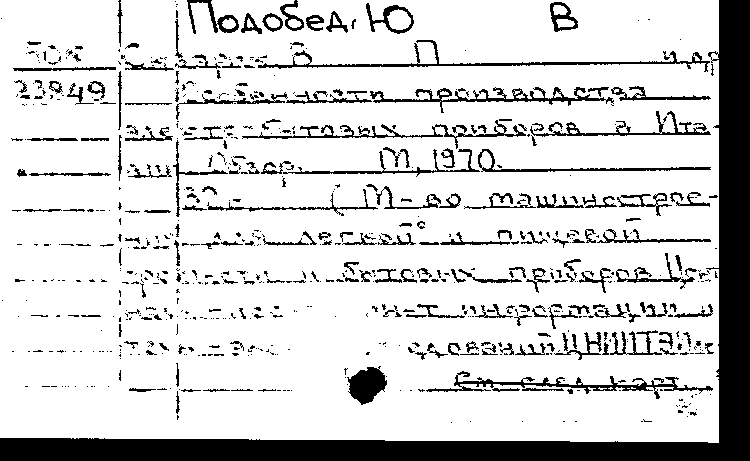 Подобед, Ю В
В П и др
23949 Особенности производства
электро-бытовых приборов в Ита-
лии Обзор. М, 1970.
32 с. ( М-во машинострое-
ния для легкой и пищевой
пром-сти и бытовых приборов Цент
информации и
ЦНИИТЭИ
См след. карт.